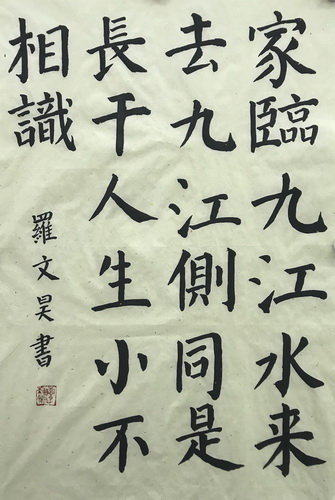 家臨九江水来
去九江側同是
長干人生小不
相識
羅文昊書